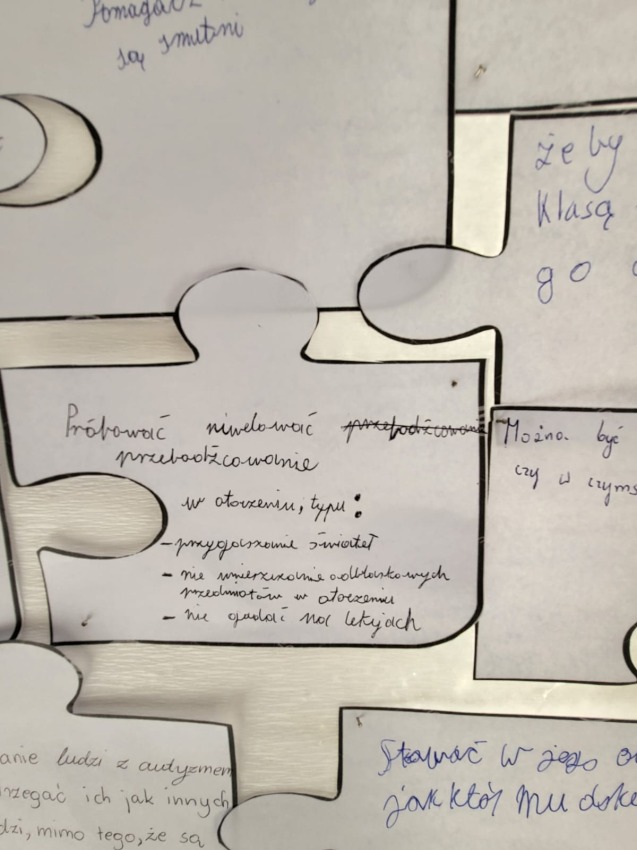 Pomagać
są smutni
że by
Klasą
go
Próbować niwelować przebodźcowanie
przebodźcowanie
w otoczeniu, typu:
- przygaszanie świateł
- nie umieszczanie odblaskowych
przedmiotów w otoczeniu
- nie gadać na lekcjach
Można być
czy w czymś
anie ludzi z autyzmem
rzegać ich jak innych
dzi, mimo tego, że są
Stawać w jego o
jak ktoś mu doku